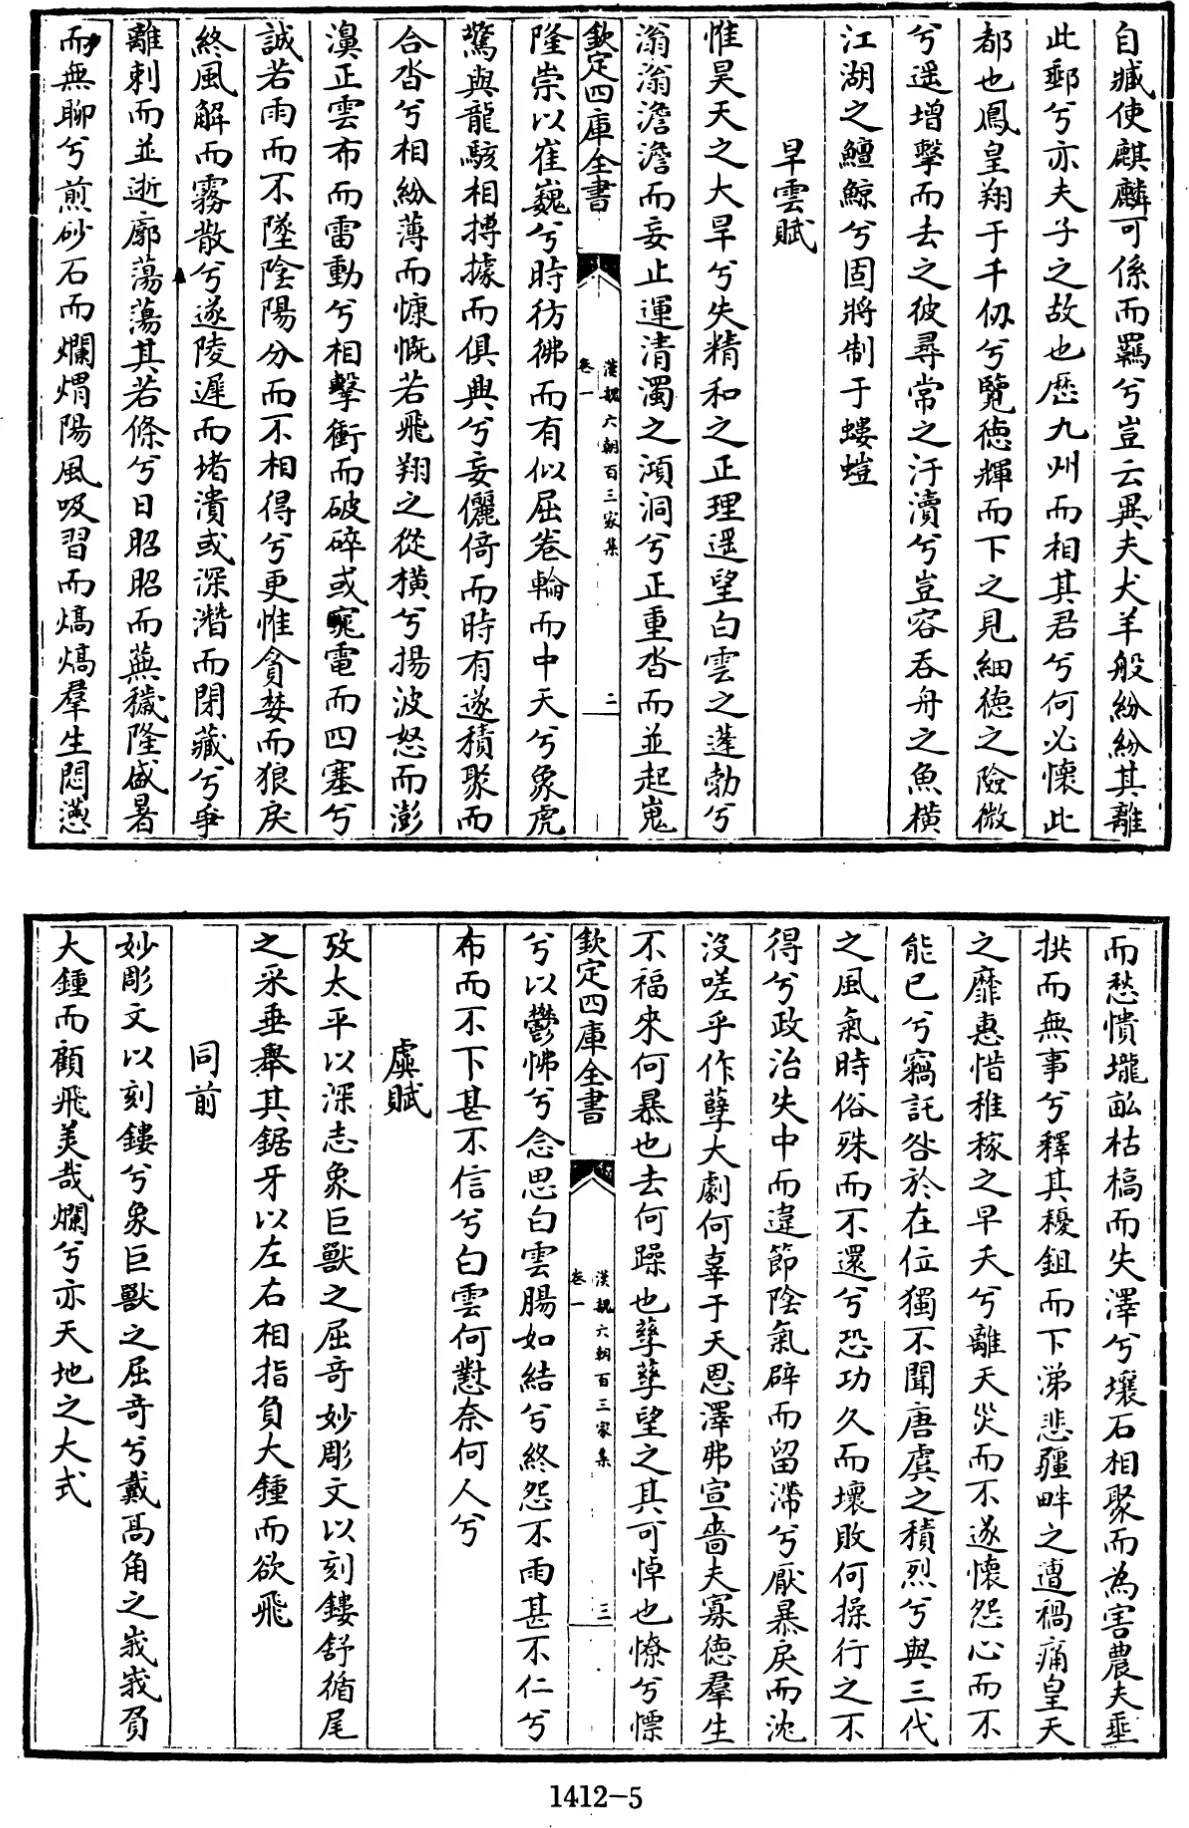 自臧使麒麟可係而羈兮豈云異夫犬羊般紛紛其離
此郵兮亦夫子之故也歴九州而相其君兮何必懐此
都也鳳皇翔于千仞兮覽徳輝而下之見細徳之險微
兮遥增擊而去之彼尋常之汙瀆兮豈容吞舟之魚橫
江湖之鱣鯨兮固將制于螻螘
旱雲賦
惟昊天之大旱兮失精和之正理遥望白雲之蓬勃兮
滃滃澹澹而妄止運清濁之澒洞兮正重沓而並起嵬
欽定四庫全書
漢魏六朝百三家集
卷一
二
隆崇以崔巍兮時彷彿而有似屈卷輪而中天兮象虎
驚與龍駭相摶據而俱興兮妄儷倚而時有遂積聚而
合沓兮相紛薄而慷慨若飛翔之從横兮揚波怒而澎
濞正雲布而雷動兮相擊衝而破碎或窕電而四塞兮
誠若雨而不墜陰陽分而不相得兮更惟貪婪而狼戾
終風解而霧散兮遂陵遲而堵潰或深潛而閉藏兮爭
離刺而並逝廓蕩蕩其若滌兮日昭昭而蕪穢隆盛暑
而無聊兮煎砂石而爛煟陽風吸習而熇熇羣生悶懣
而愁憒壠畝枯槁而失澤兮壤石相聚而為害農夫垂
拱而無事兮釋其耰鉏而下涕悲疆畔之遭禍痛皇天
之靡惠惜稚稼之旱夭兮離天災而不遂懐怨心而不
能已兮竊託咎於在位獨不聞唐虞之積烈兮與三代
之風氣時俗殊而不還兮恐功久而壞敗何操行之不
得兮政治失中而違節陰氣辟而留滯兮厭暴戾而沈
沒嗟乎作孽大劇何辜于天恩澤弗宣嗇夫寡徳羣生
不福來何暴也去何躁也孽孽望之其可悼也憭兮慄
欽定四庫全書
漢魏六朝百三家集
卷一
三
兮以鬱怫兮念思白雲腸如結兮終怨不雨甚不仁兮
布而不下甚不信兮白雲何懟奈何人兮
虡賦
攷太平以深志象巨獸之屈奇妙彫文以刻鏤舒循尾
之采垂舉其鋸牙以左右相指負大鍾而欲飛
同前
妙彫文以刻鏤兮象巨獸之屈奇兮戴髙角之峩峩負
大鍾而顧飛美哉爛兮亦天地之大式
1412-5